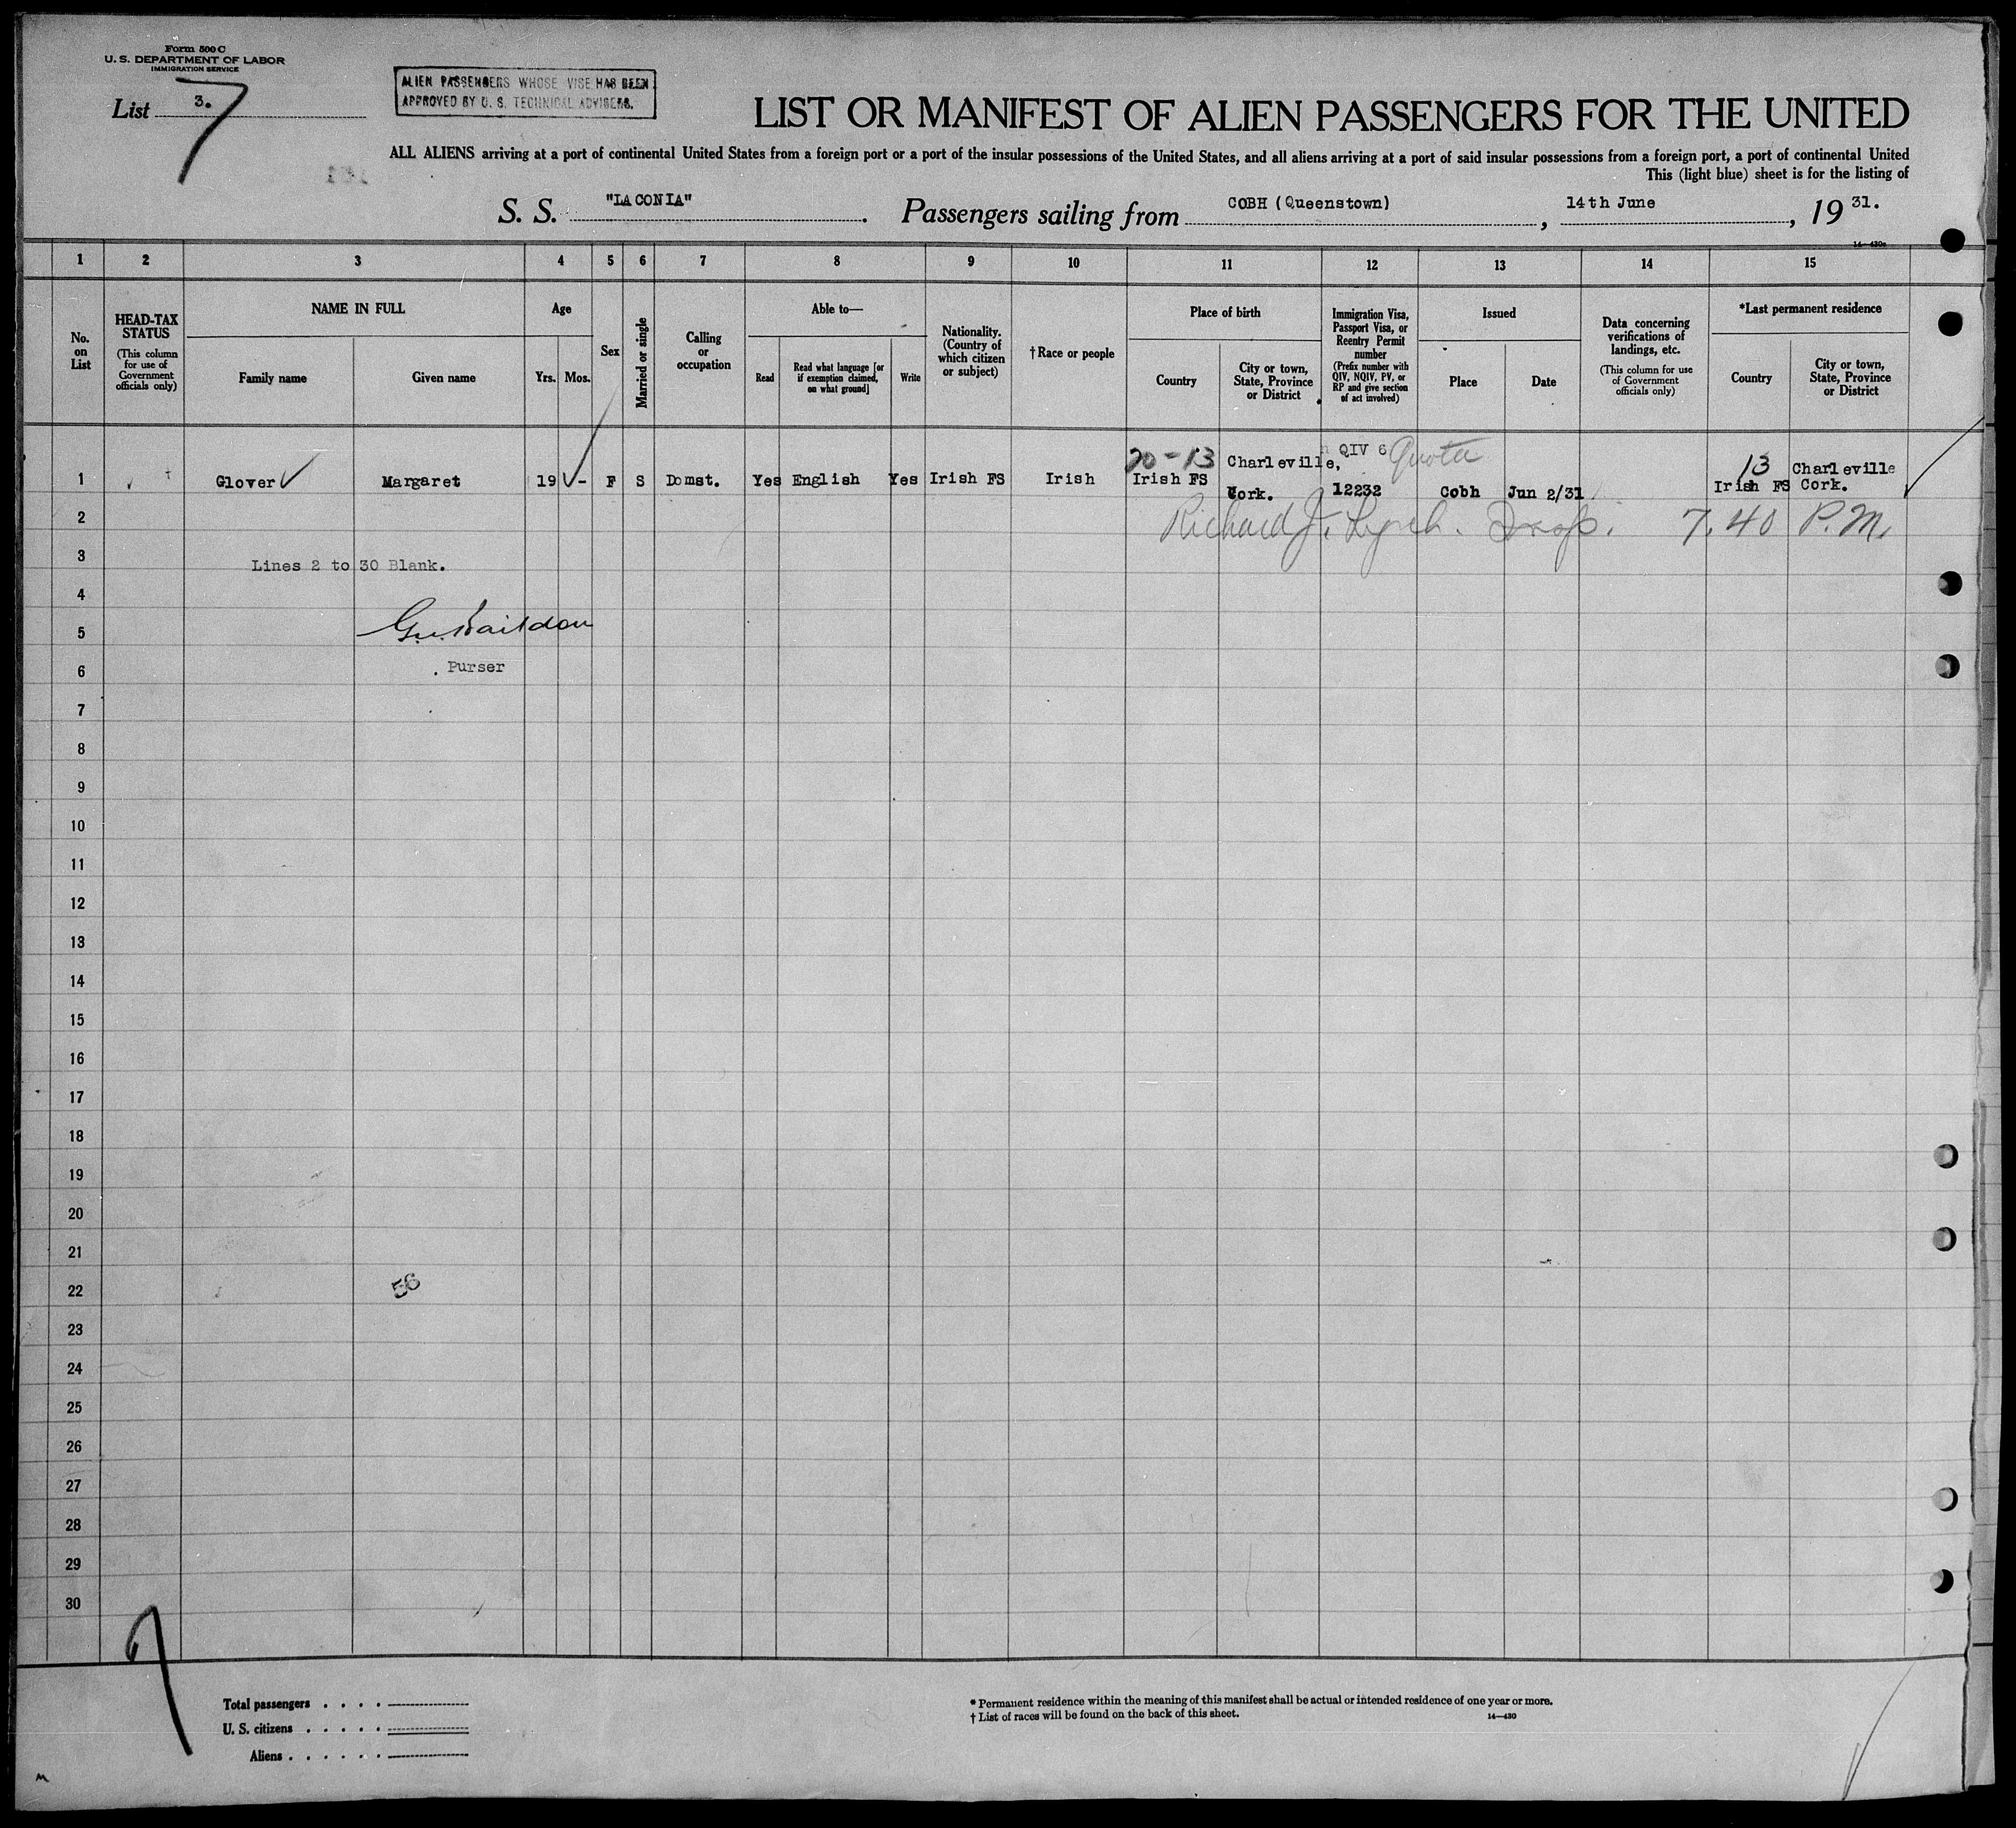 Form 500 C
U. S. DEPARTMENT OF LABOR
IMMIGRATION SERVICE
List 3.
7
ALIEN PASSENGERS WHOSE VISE HAS BEEN
APPROVED BY U. S. TECHNICAL ADVISERS.
LIST OR MANIFEST OF ALIEN PASSENGERS FOR THE UNITED
ALL ALIENS arriving at a port of continental United States from a foreign port or a port of the insular possessions of the United States, and all aliens arriving at a port of said insular possessions from a foreign port, a port of continental United
This (light blue) sheet is for the listing of
S. S. "LACONIA". Passengers sailing from COBH (Queenstown), 14th June, 19 31.
14—430a
1 2 3 4 5 6 7 8 9 10 11 12 13 14 15
No. on List
HEAD-TAX STATUS (This column for use of Government officials only)
NAME IN FULL
Family name Given name
Age
Yrs. Mos.
Sex
Married or single
Calling or occupation
Able to—
Read
Read what language [or if exemption claimed, on what ground]
Write
Nationality. (Country of which citizen or subject)
†Race or people
Place of birth
Country
City or town, State, Province or District
Immigration Visa, Passport Visa, or Reentry Permit number (Prefix number with QIV, NQIV, PV, or RP and give section of act involved)
Issued
Place Date
Data concerning verifications of landings, etc. (This column for use of Government officials only)
*Last permanent residence
Country
City or town, State, Province or District
20-13 Charleville, QIV 6 Quota 13 Charleville
1 Glover Margaret 19 - F S Domst. Yes English Yes Irish FS Irish Irish FS Cork. 12232 Cobh Jun 2/31 Irish FS Cork.
2 Richard J. Lynch. Insp. 7.40 P.M.
3 Lines 2 to 30 Blank.
4
5
6 Purser
7
8
9
10
11
12
13
14
15
16
17
18
19
20
21
22 56
23
24
25
26
27
28
29
30
Total passengers . . . .
U. S. citizens . . . . .
Aliens . . . . . .
* Permanent residence within the meaning of this manifest shall be actual or intended residence of one year or more.
† List of races will be found on the back of this sheet.
14—430